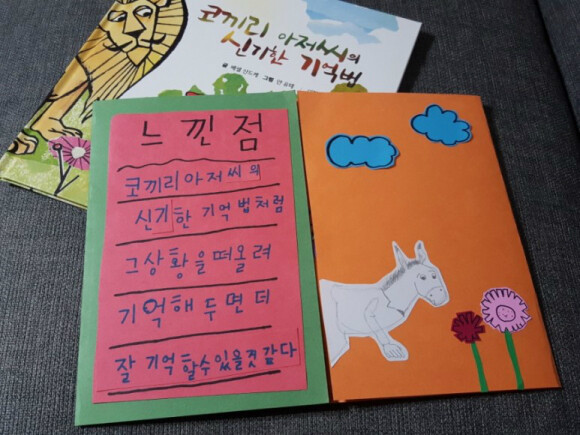 코끼리 아저씨의
신기한 기억법
느낀점
코끼리아저씨의
신기한 기억법처럼
그상황을떠올려
기억해두면더
잘 기억할수있을것같다